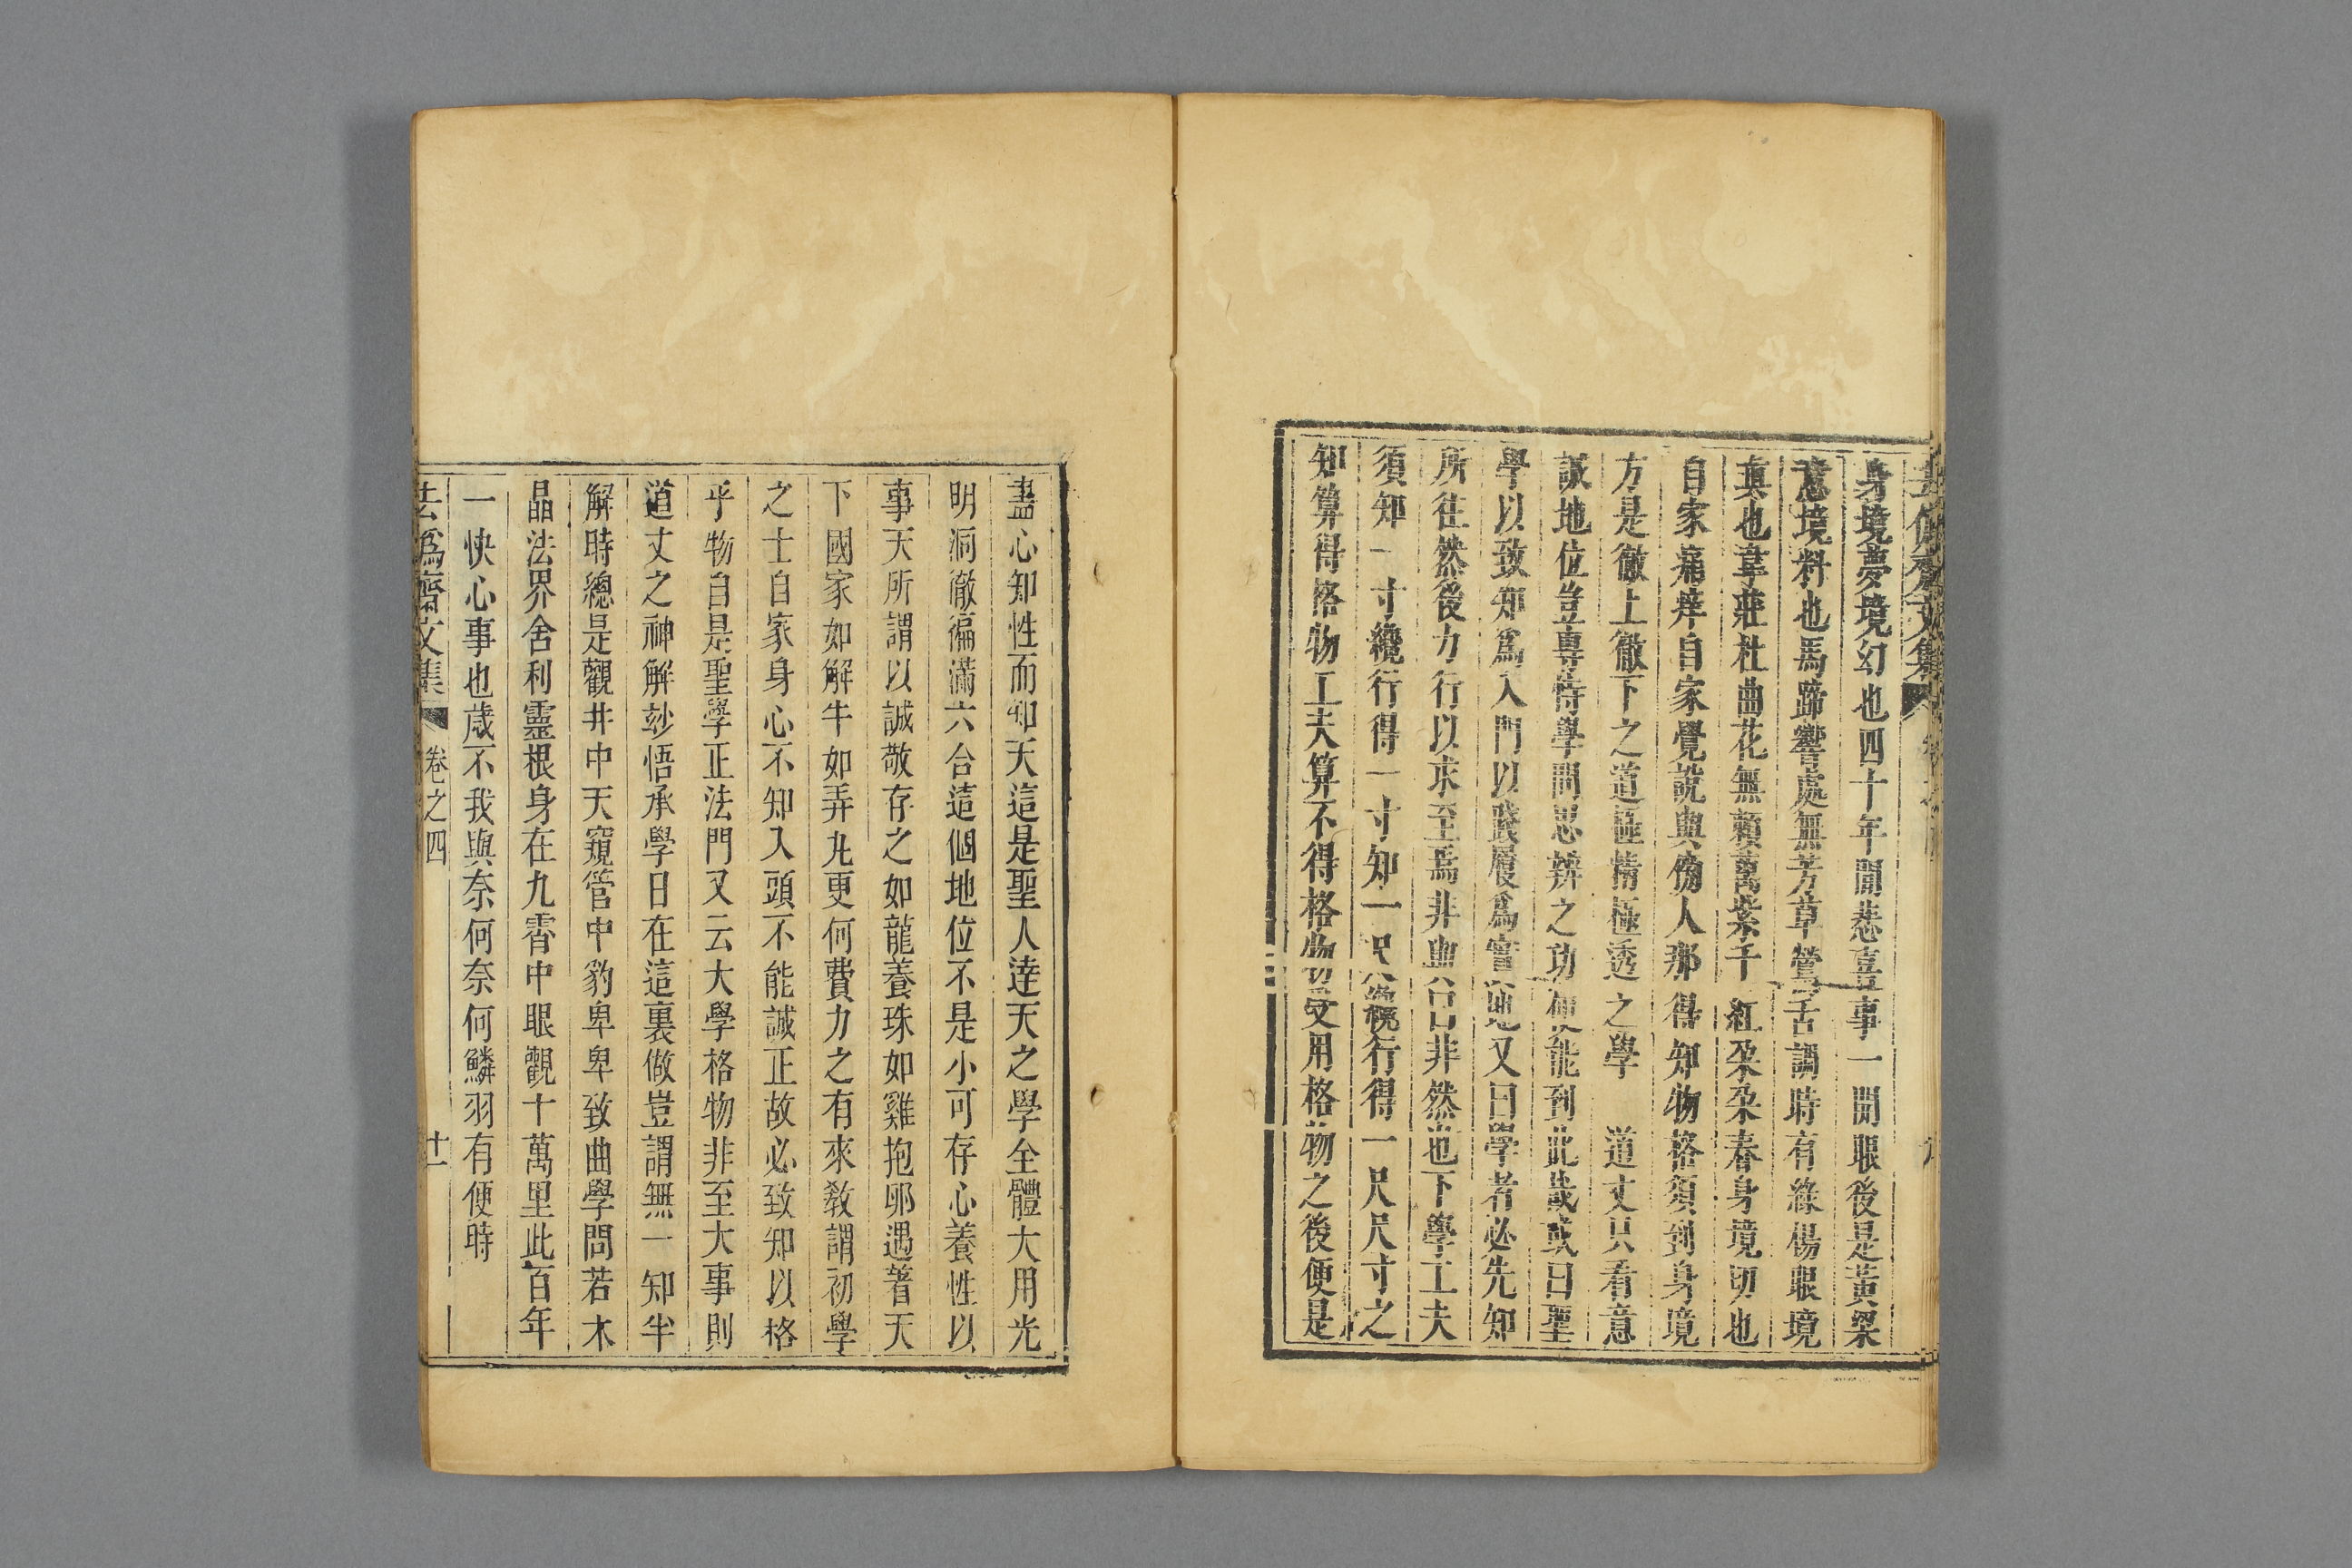 身境夢境幻也四十年閒悲喜事一開眼後是黃粱
意境料也馬蹄響處無芳草鶯舌調時有綠楊眼境
真也韋莊杜曲花無賴萬紫千紅朶朶春身境切也
自家痛痒自家覺說與傍人那得知物格須到身境
方是徹上徹下之道極情極透之學 道丈只看意
誠地位豈專恃學問思辨之功便能到此哉或曰聖
學以致知爲入門以踐履爲實地又曰學者必先知
所往然後力行以求至焉非幽 曰非然也下學工夫
須知一寸纔行得一寸知一尺纔行得一尺尺寸之
知算得格物工夫算不得格物受用格物之後便是
盡心知性而知天這是聖人達天之學全體大用光
明洞徹徧滿六合這個地位不是小可存心養性以
事天所謂以誠敬存之如龍養珠如雞抱卵遇著天
下國家如解牛如弄丸更何費力之有來敎謂初學
之士自家身心不知入頭不能誠正故必致知以格
乎物自是聖學正法門又云大學格物非至大事則
道丈之神解玅悟承學日在這裏做豈謂無一知半
解時總是觀井中天窺管中豹卑卑致曲學問若木
晶法界舍利靈根身在九霄中眼觀十萬里此百年
一快心事也歲不我與奈何奈何鱗羽有便時
去爲齋文集 卷之四 十一